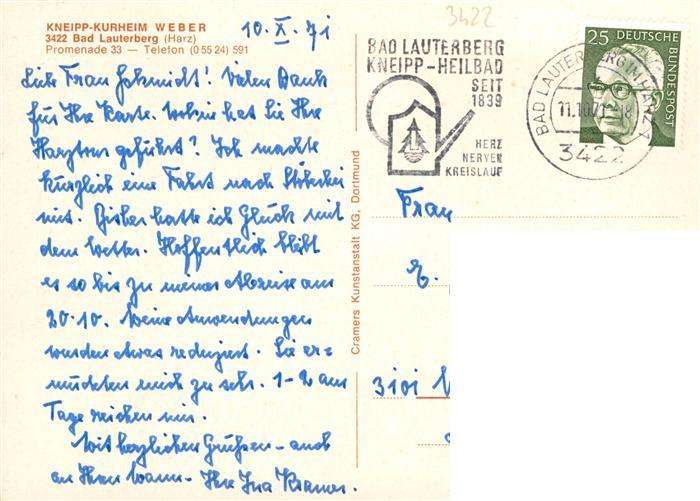 KNEIPP-KURHEIM WEBER
3422 Bad Lauterberg (Harz)
Promenade 33 — Telefon (0 55 24) 591
10. X. 71
Liebe Frau Schmidt! Vielen Dank
für Ihre Karte. Wohin hat Sie Ihre
Harztour geführt? Ich machte
kürzlich eine Fahrt nach
mit. Bisher hatte ich Glück mit
dem Wetter. Hoffentlich bleibt
es so bis zu meiner Abreise am
20.10. Meine Anwendungen
wurden etwas reduziert. Sie er=
müdeten mich zu sehr. 1-2 am
Tage reichen mir.
Mit herzlichen Grüßen - auch
an Ihren Mann - Ihre Ina Kramer.
Cramers Kunstanstalt KG, Dortmund
3422
BAD LAUTERBERG
KNEIPP-HEILBAD
SEIT
1839
HERZ
NERVEN
KREISLAUF
BAD LAUTERBERG IM HARZ 1
11.10.71-18
3422
25 DEUTSCHE BUNDESPOST
Frau
E.
3101